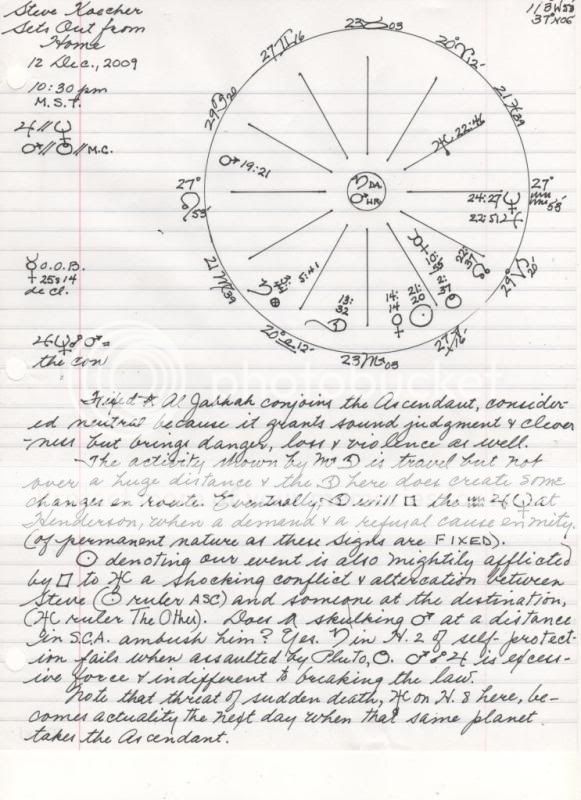 Steve Koecher
Sets Out from
Home
12 Dec., 2009
10:30 pm
M.S.T.
♃//♆
♂//☉//M.C.
☿ O.O.B.
+25S14
decl.
♃♆☍♂=
the con
37N06
23 ♉ 03
20° ♈ 12'
21 ♓ 39
27°
♒
58'
29° ♑ 20'
27 ♐ 16
23 ♏ 03
20° ♎ 12'
21 ♍ 39
27°
♌
29 ♋ 20
27 ♊ 16
♄ DA.
♂ HR.
♅ 22:46
24:27 ♆
22:51 ♃
♂ 19:21
13:
32
14:
14
♀
21:
20
☉
photobucket
Fixed ✶ Al Jabhah conjoins the Ascendant, consider-
ed neutral because it grants sound judgment & clever
-ness but brings danger, loss & violence as well.
The activity shown by ♏ ☽ is travel but not
over a huge distance & the ☽ here does create some
changes en route. Eventually, ☽ will □ the ♒ ♃ ♆ at
Henderson, when a demand & a refusal cause enmity.
(of permanent nature as these signs are FIXED).
☉ denoting our event is also mightily afflicted
by □ to ♅ a shocking conflict & altercation between
Steve (☉ ruler ASC) and someone at the destination,
(♅ ruler The Other). Does a skulking ♂ at a distance
in S.C.A. ambush him? Yes. ♄ in H. 2 of self-protect-
ion fails when assaulted by Pluto, ♂ ☍ ♃ is excess-
ive force & indifferent to breaking the law.
Note that threat of sudden death, ♅ on H. 8 here, be-
comes actuality the next day when that same planet
takes the Ascendant.